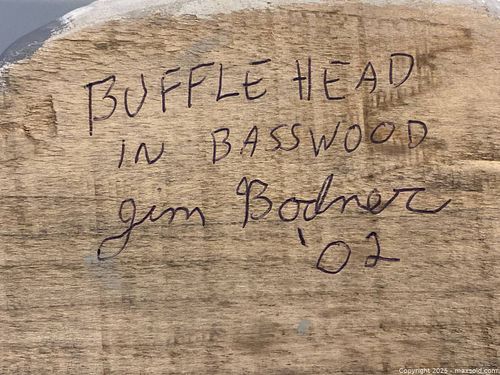 BUFFLE HEAD
IN BASSWOOD
Jim Bodner
'02
Copyright 2025 - maxsold.com